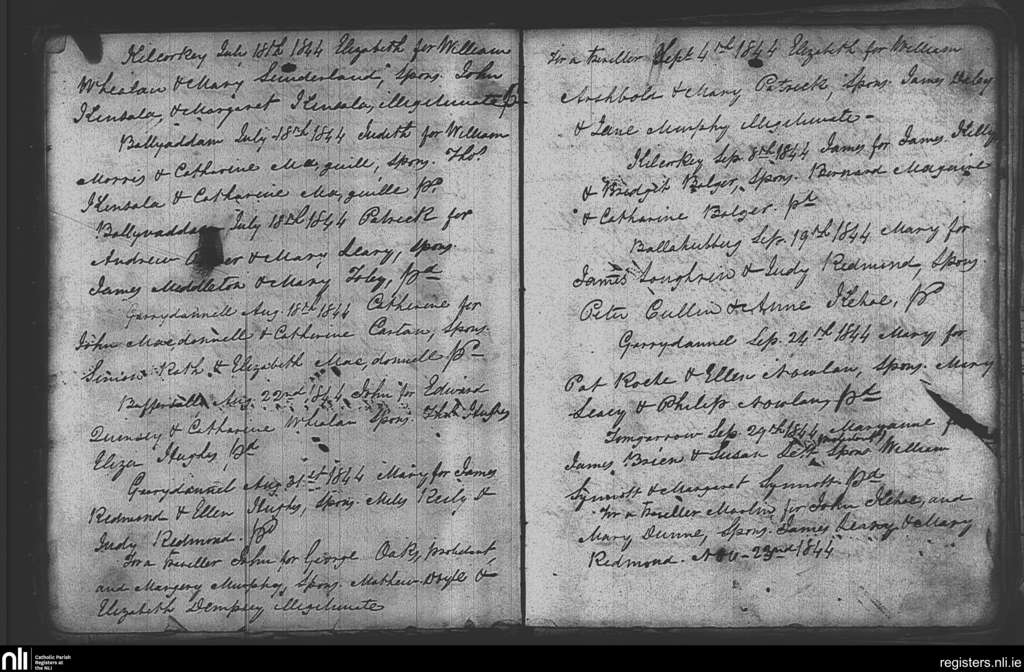 Kilcorkey July 18th 1844 Elizabeth for William
Whealan & Mary Sunderland, Spons. John
Kinsala, & Margaret Kinsala, illegitimate pd
Ballyaddam July 18th 1844 Judith for William
Morris & Catharine Maguille, Spons. Thos
Kinsala & Catharine Maguille pd
Ballyvaddam July 18th 1844 Patrick for
Andrew & Mary Leary, Spons.
James Meddleton & Mary Foley, pd
Garrydannell Aug. 18th 1844 Catherine for
John Macdonnell & Catherine Carlan, Spons.
Simion Rath & Elizabeth Macdonnell pd
Aug. 22nd 1844 John for Edward
Quinsey & Catharine Whealan Spons. Thos Hughes
Eliza Hughes, pd
Garrydannel Aug 31st 1844 Mary for James
Redmond & Ellen Hughs, Spons. Miles Reily &
Judy Redmond. pd
For a traviller John for George Oak, protestant
and Margery Murphy, Spons. Mathew Doyle &
Elizabeth Dempsey illegitimate
For a traviller Sept 4th 1844 Elizabeth for William
Archbold & Mary Patrick, Spons. James Delay
& Jane Murphy illegitimate -
Kilcorkey Sep. 8th 1844 James for James Killy
& Bridget Bolger, Spons. Bernard Maguire
& Catharine Bolger. pd
Ballahubbug Sep. 19th 1844 Mary for
James Loughrin & Judy Redmond, Spons.
Peter Cullin & Anne Kehoe, pd
Garrydannel Sep. 24th 1844 Mary for
Pat Roche & Ellen Nowlan, Spons. Mary
Leacy & Philip Nowlan, pd
Tomgarrow Sep. 29th 1844 Maryanne for
James Brien & Susan Spons William
Synnott & Margaret Synnott pd
For a traviller for John Kehoe, and
Mary Dunne, Spons. James Leary & Mary
Redmond. Nov. 23nd 1844
nli
Catholic Parish
Registers at
the NLI
registers.nli.ie